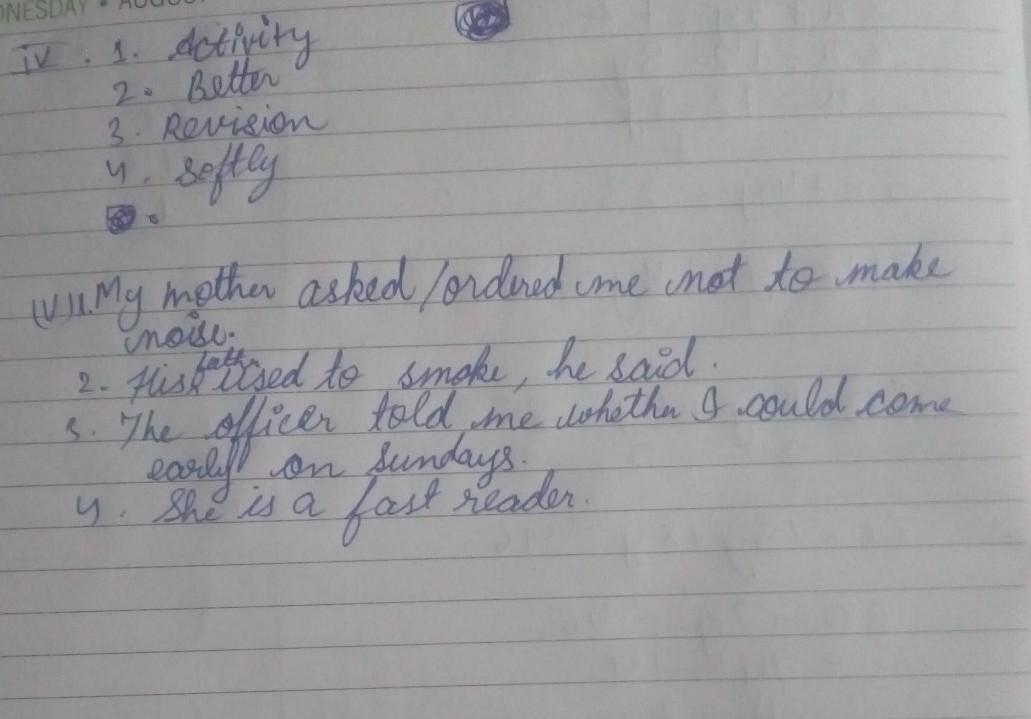 NESDAY • AUGU
iv. 1. Activity
2. Better
3. Revision
4. Softly
(V) 1. My mother asked/ordered me not to make
noise.
2. His father used to smoke, he said.
3. The officer told me whether I could come
early on Sundays.
4. She is a fast reader.